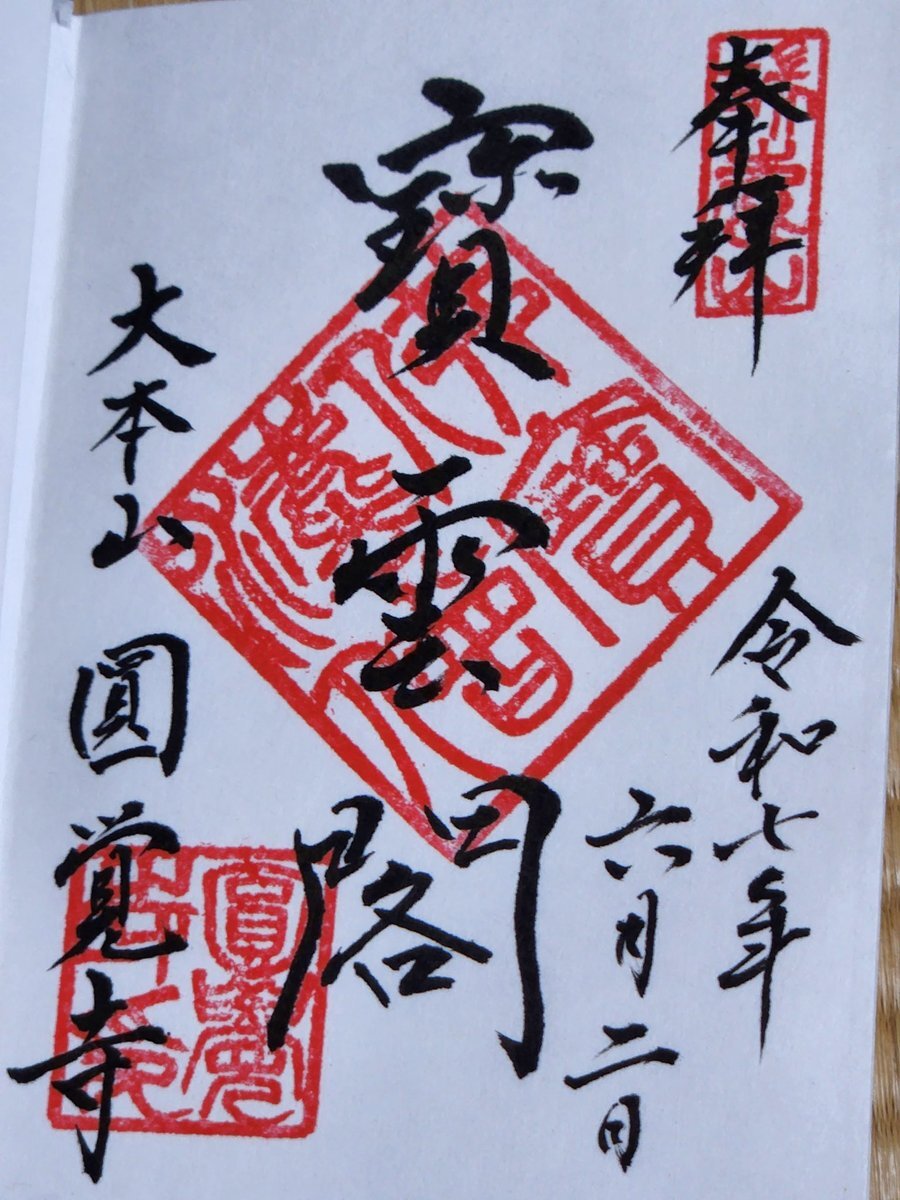 奉拜
令和七年
六月二日
寶雲閣
大本山
圓覚寺